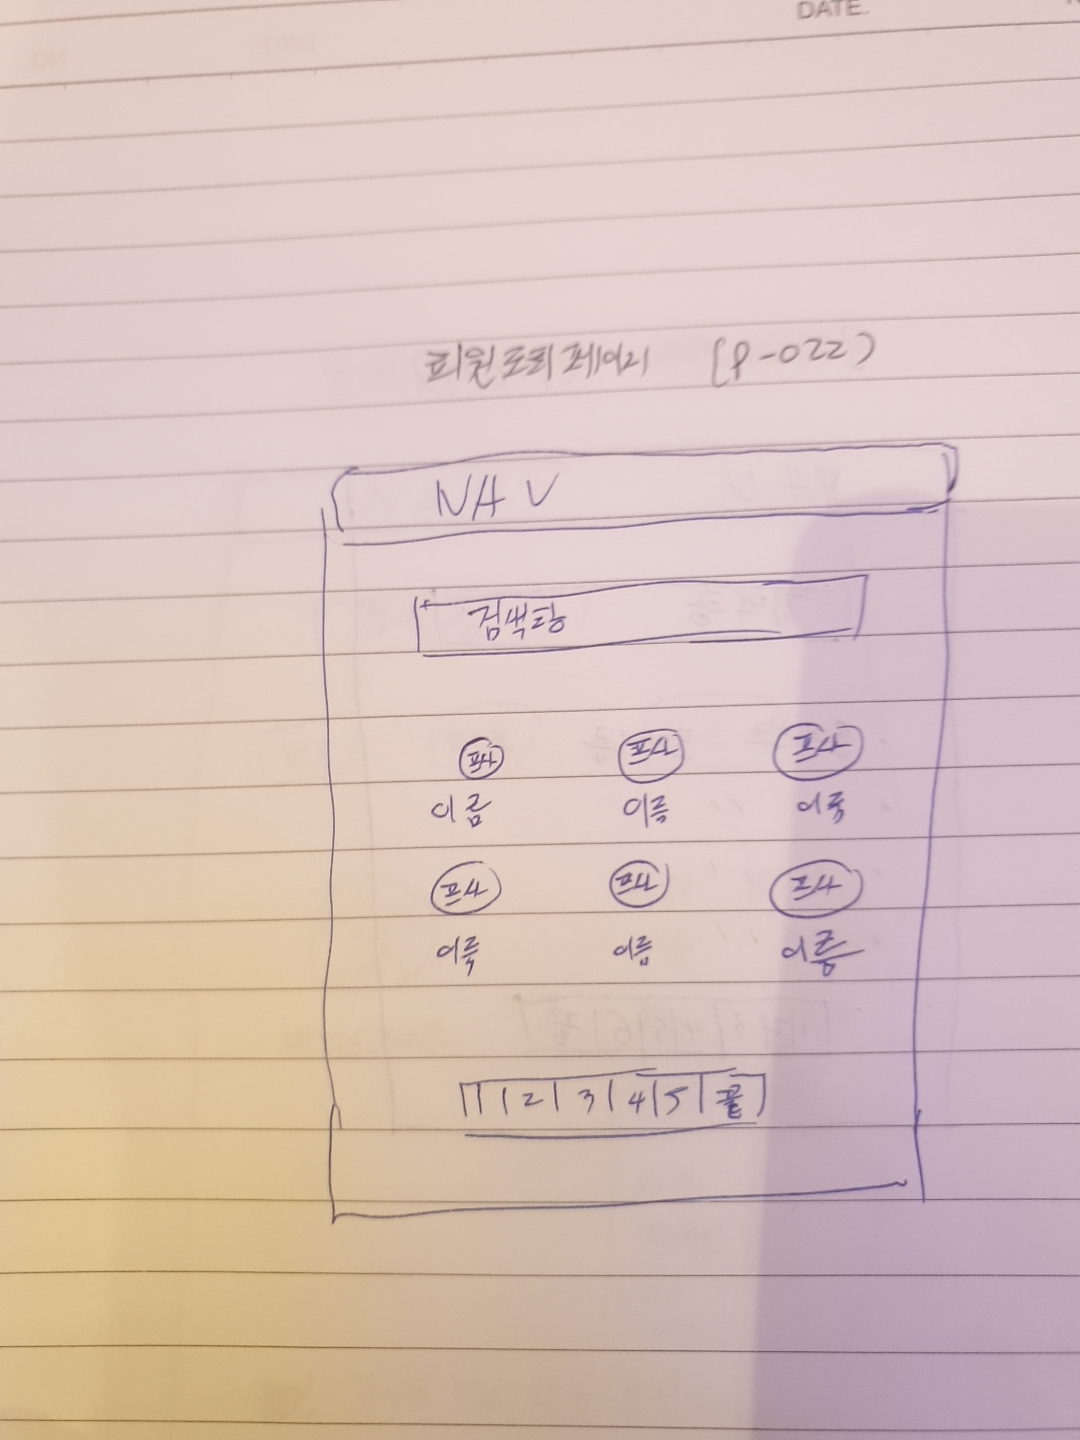 DATE.
회원조회 페이지 (P-022)
NAV
검색탕
프사 프사 프사
이름 이름 이름
프사 프사 프사
이름 이름 이름
1 2 3 4 5 끝